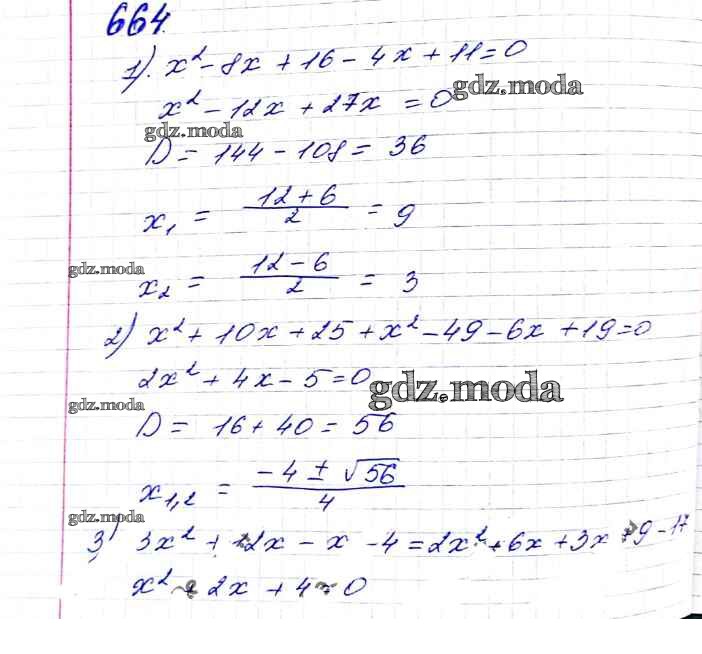 664.
1). x² - 8x + 16 - 4x + 11 = 0
gdz.moda
x² - 12x + 27x = 0
gdz.moda
D = 144 - 108 = 36
x₁ = (12 + 6)/2 = 9
gdz.moda
x₂ = (12 - 6)/2 = 3
2) x² + 10x + 25 + x² - 49 - 6x + 19 = 0
2x² + 4x - 5 = 0
gdz.moda
gdz.moda
D = 16 + 40 = 56
x₁,₂ = (-4 ± √56)/4
gdz.moda
3) 3x² + 12x - x - 4 = 2x² + 6x + 3x + 9 - 17
x² + 2x + 4 = 0